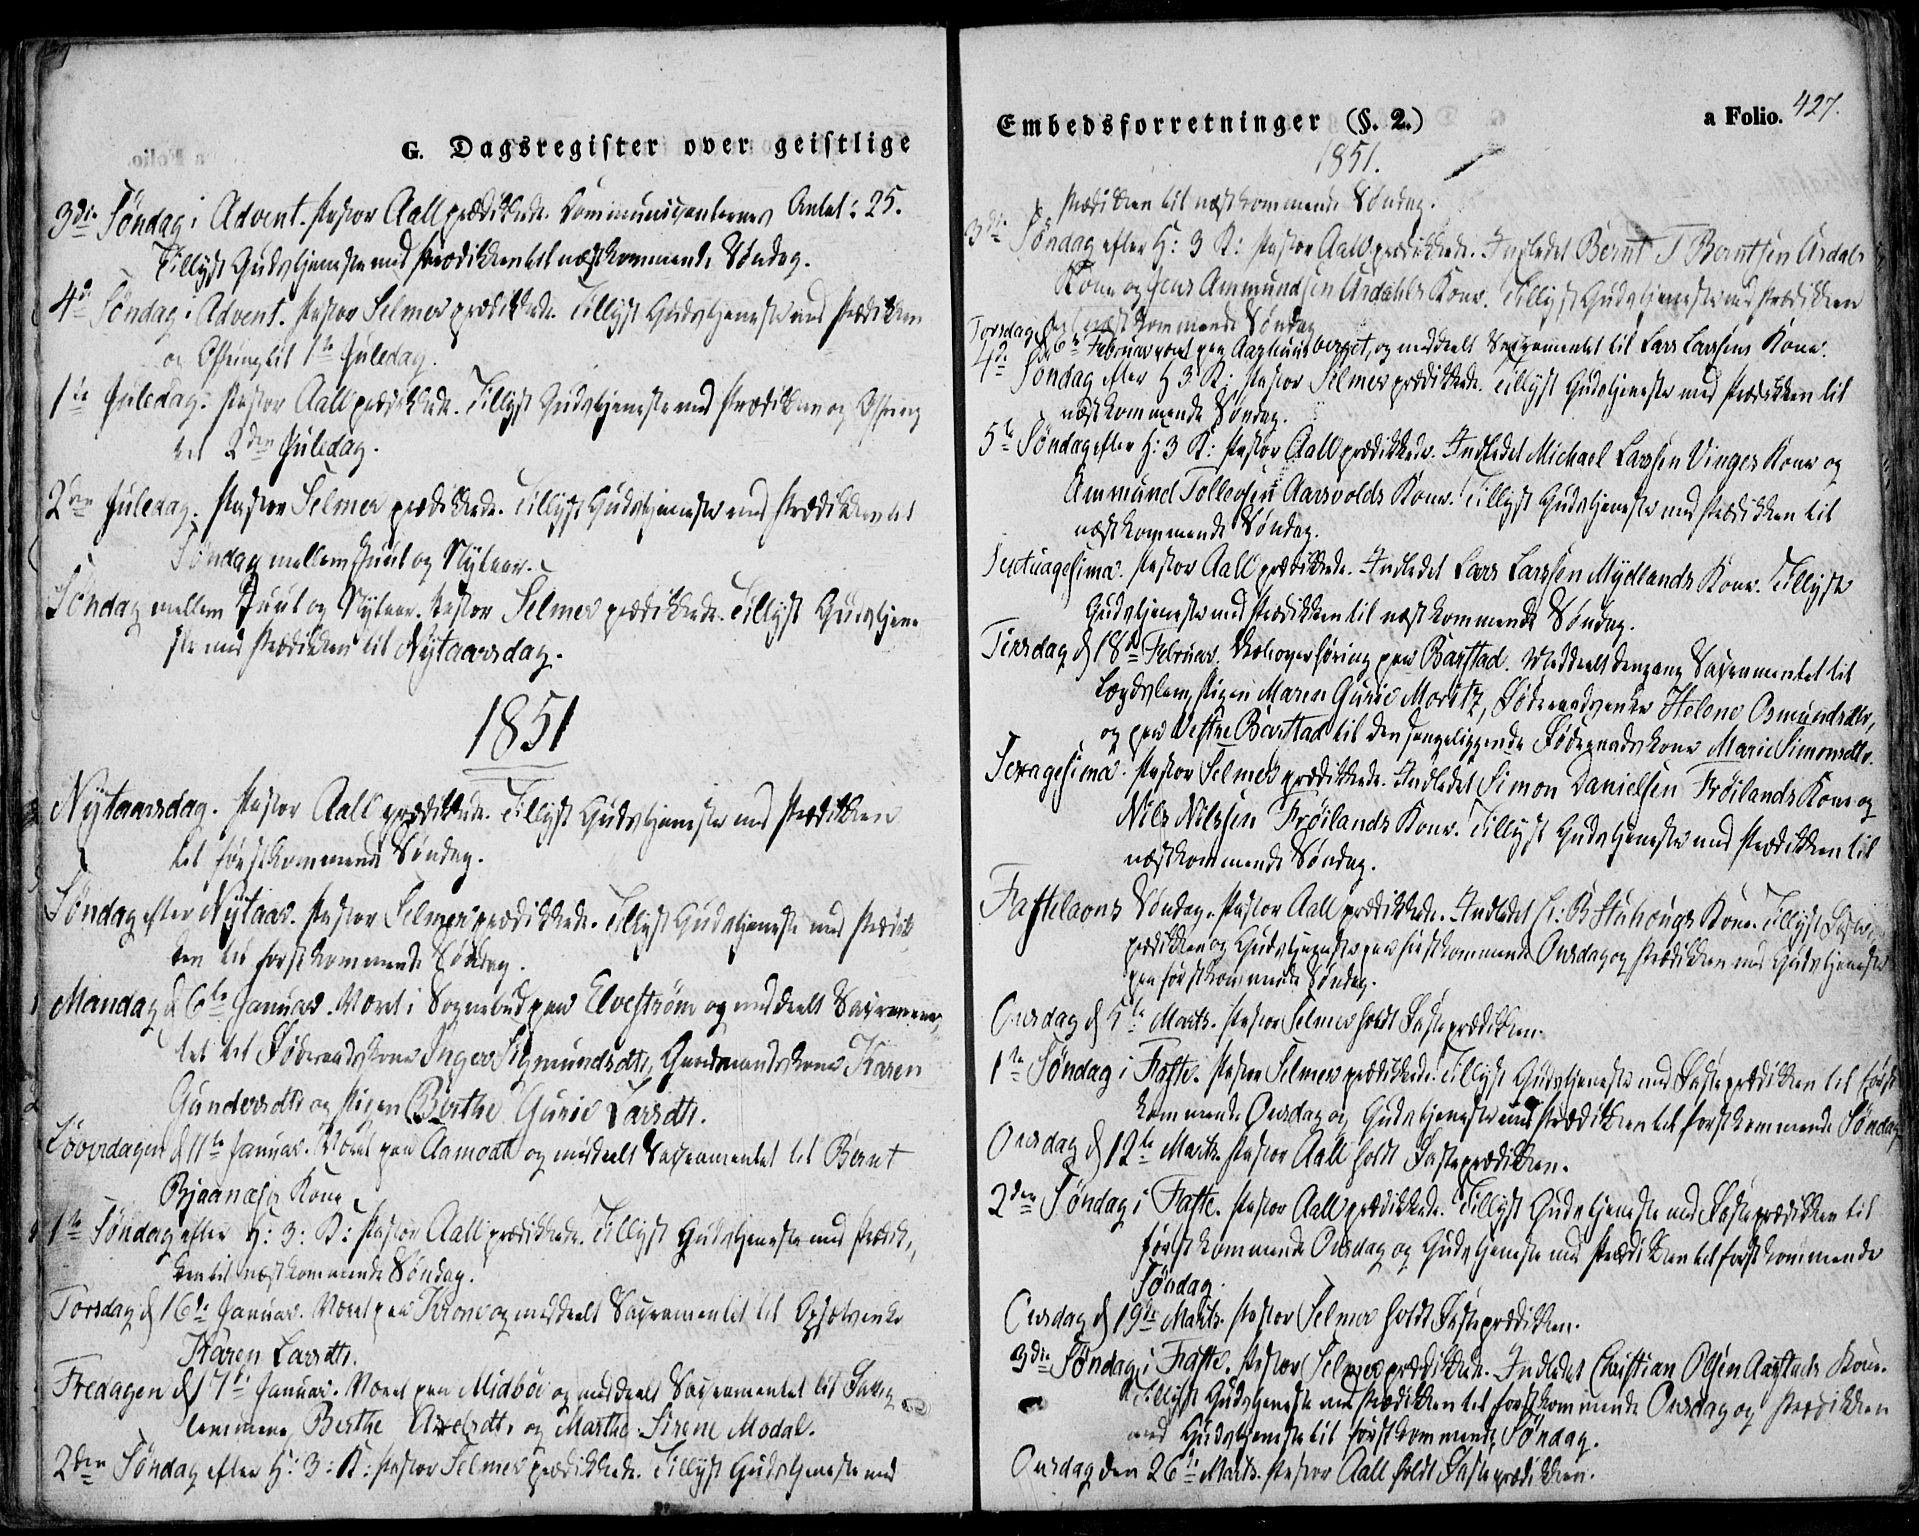 G. Dagsregister over geistlige
3die Søndag i Advent. Pastor Aall prædikede. Communicanternes Antal: 25.
Tillyst Gudstjeneste med Prædiken til næstkommende Søndag.
4de Søndag i Advent. Pastor Selmer prædikede. Tillyst Gudstjeneste med Prædiken
og Ofring til 1ste Juledag.
1ste Juledag. Pastor Aall prædikede. Tillyst Gudstjeneste med Prædiken og Ofring
til 2den Juledag.
2den Juledag. Pastor Selmer prædikede. Tillyst Gudstjeneste med Prædiken til
Søndag mellem Juul og Nytaar.
Søndag mellem Juul og Nytaar. Pastor Selmer prædikede. Tillyst Gudstjene
ste med Prædiken til Nytaarsdag.
1851
Nytaarsdag. Pastor Aall prædikede. Tillyst Gudstjeneste med Prædiken
til førstkommende Søndag.
Søndag efter Nytaar. Pastor Selmer prædikede. Tillyst Gudstjeneste med Prædi
ken til førstkommende Søndag.
Mandag d 6te Januar. Været i Sognebud paa Elvestrøm og meddeelt Sacramen
tet til Føderaadskone Inger Sigmundsdtr, Gaardmandskone Karen
Gundersdtr og Pigen Berthe Gurie Larsdtr.
Løverdagen d 11te Januar. Været paa Aamodt og meddeelt Sacramentet til Bernt
Bjaanæses Kone.
1ste Søndag efter H: 3: K: Pastor Aall prædikede. Tillyst Gudstjeneste med Prædi
ken til næstkommende Søndag.
Torsdag d 16de Januar. Været paa Krone og meddeelt Sacramentet til
Karen Larsdtr.
Fredagen d 17de Januar. Været paa Midbøe og meddeelt Sacramentet til
lemmene Berthe Axelsdtr og Marthe Sirene Modal.
2den Søndag efter H: 3: K: Pastor Selmer prædikede. Tillyst Gudstjeneste med
Embedsforretninger (§. 2.)
a Folio. 427.
1851.
Prædiken til næstkommende Søndag.
3die Søndag efter H: 3 K: Pastor Aall prædikede. Indledet Bernt T Berntsen Årdals
Kone og Jens Ammundsen Årdahls Kone. Tillyst Gudstjeneste med Prædiken
til næstkommende Søndag
Torsdag d 6te Februar været paa Aarhuusberget, og meddeelt Sacramentet til Lars Larsens Kone.
4de Søndag efter H 3 K: Pastor Selmer prædikede. Tillyst Gudstjeneste med Prædiken til
næstkommende Søndag.
5te Søndag efter H: 3 K: Pastor Aall prædikede. Indledet Michael Larsen Vinges Kone og
Ammund Tollevsen Aarsvolds Kone. Tillyst Gudstjeneste med Prædiken til
næstkommende Søndag.
Septuagesima. Pastor Aall prædikede. Indledet Lars Larsen Mydlands Kone. Tillyst
Gudstjeneste med Prædiken til næstkommende Søndag.
Tirsdag d 18de Februar. paa Barstad. Meddeelt dengang Sacramentet til
Lægdslem Pigen Maren Gurie Moritz, Føderaadsenke Helene Osmundsdtr,
og paa Vestre Barstad til den sengeliggende Føderaadskone Marie Simonsdtr.
Sexagesima. Pastor Selmer prædikede. Indledet Simon Danielsen Frøilands Kone og
Nils Nilssen Frøilands Kone. Tillyst Gudstjeneste med Prædiken til
næstkommende Søndag.
Fastelavns Søndag. Pastor Aall prædikede. Indledet B Kone. Tillyst Faste
prædiken og Gudstjeneste paa førstkommende Onsdag og Prædiken med Gudstjeneste
paa førstkommende Søndag.
Onsdag d 5te Marts. Pastor Selmer holdt Fasteprædiken.
1ste Søndag i Faste. Pastor Selmer prædikede. Tillyst Gudstjeneste med Fasteprædiken til først
kommende Onsdag og Gudstjeneste med Prædiken til førstkommende Søndag
Onsdag d 12te Marts. Pastor Aall holdt Fasteprædiken.
2den Søndag i Faste. Pastor Aall prædikede. Tillyst Gudstjeneste med Fasteprædiken til
førstkommende Onsdag og Gudstjeneste med Prædiken til førstkommende
Søndag.
Onsdag d 19de Marts. Pastor Selmer holdt Fasteprædiken.
3die Søndag i Faste. Pastor Selmer prædikede. Indledet Christian Olsen Aarstads Kone.
Tillyst Gudstjeneste med Prædiken til førstkommende Onsdag og Prædiken
med Gudstjeneste til førstkommende Søndag.
Onsdag den 26de Marts. Pastor Aall holdt Fasteprædiken.